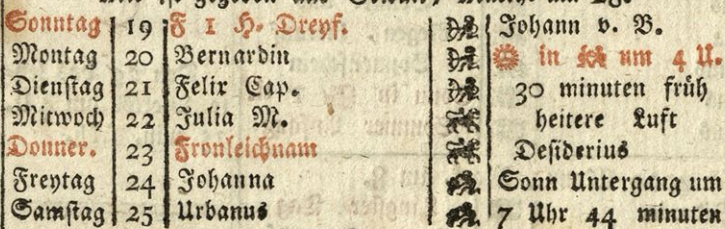 Sonntag 19 F 1 H. Dreyf. Johann v. B.
Montag 20 Bernardin in um 4 U.
Dienſtag 21 Felix Cap. 30 minuten früh
Mitwoch 22 Julia M. heitere Luft
Donner. 23 Fronleichnam Deſiderius
Freytag 24 Johanna Sonn Untergang um
Samſtag 25 Urbanus 7 Uhr 44 minuten